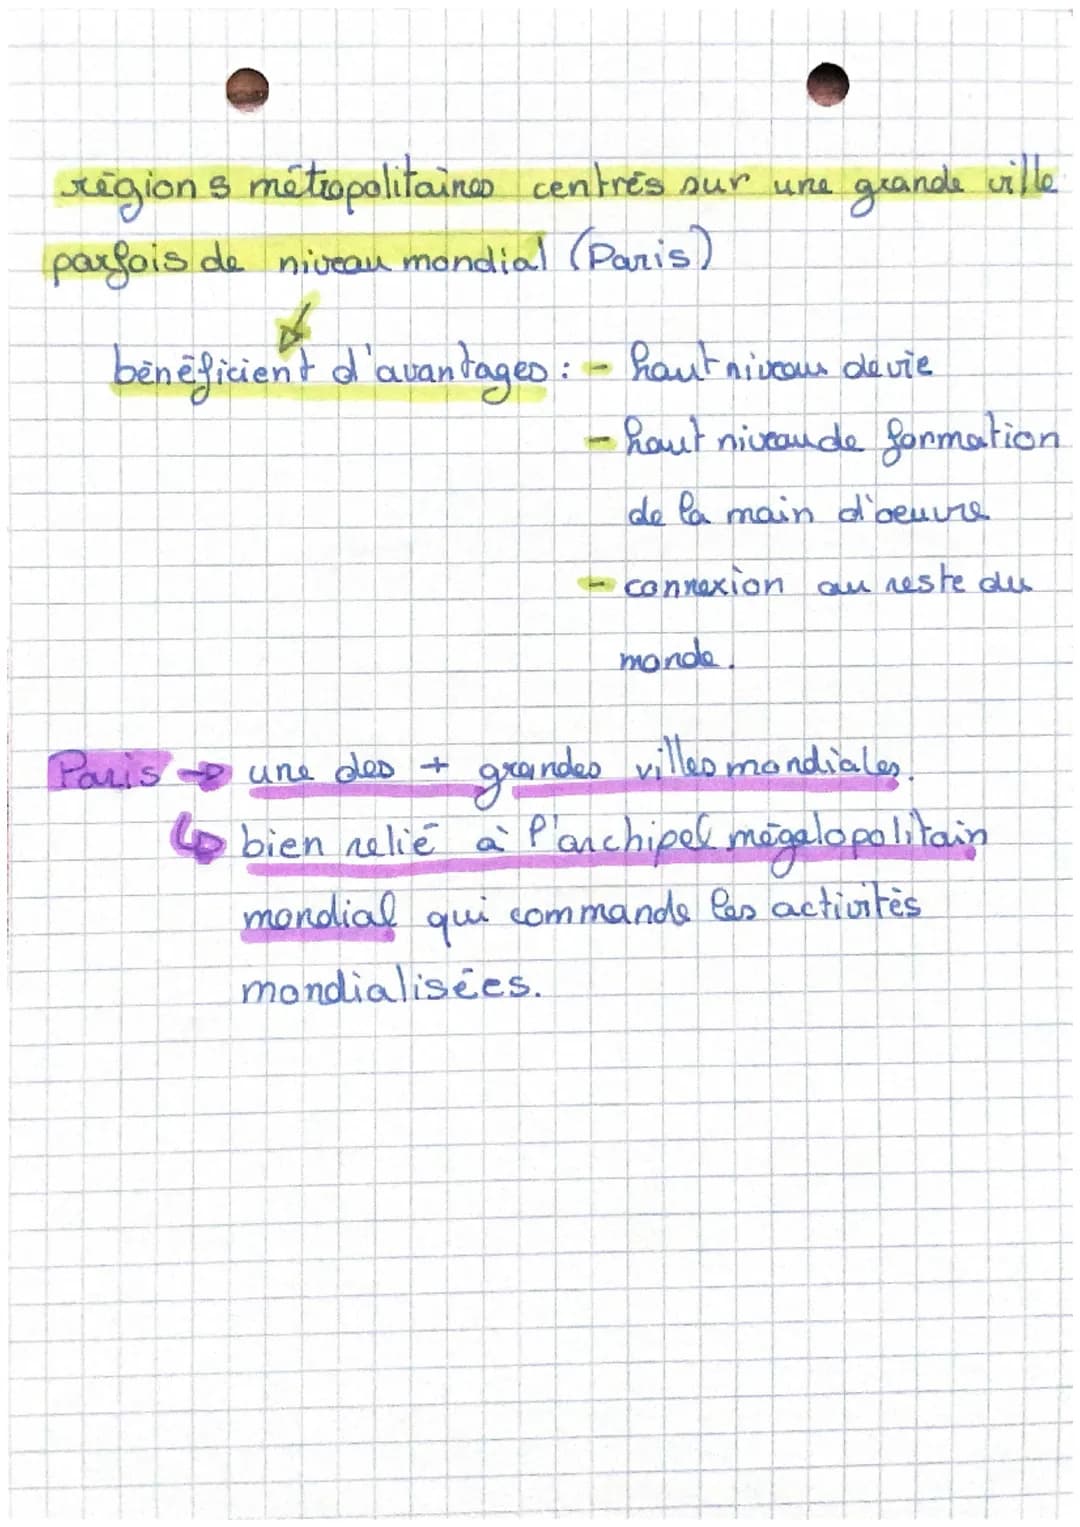 régions métropolitaines centrés sur une grande ville
parfois de niveau mondial (Paris)
bénéficient d'avantages : - haut niveau de vie
- haut niveau de formation
de la main d'oeuvre
- connexion au reste du
monde.
Paris → une des + grandes villes mondiales.
↳ bien relié à l'archipel mégalopolitain
mondial qui commande les activités
mondialisées.